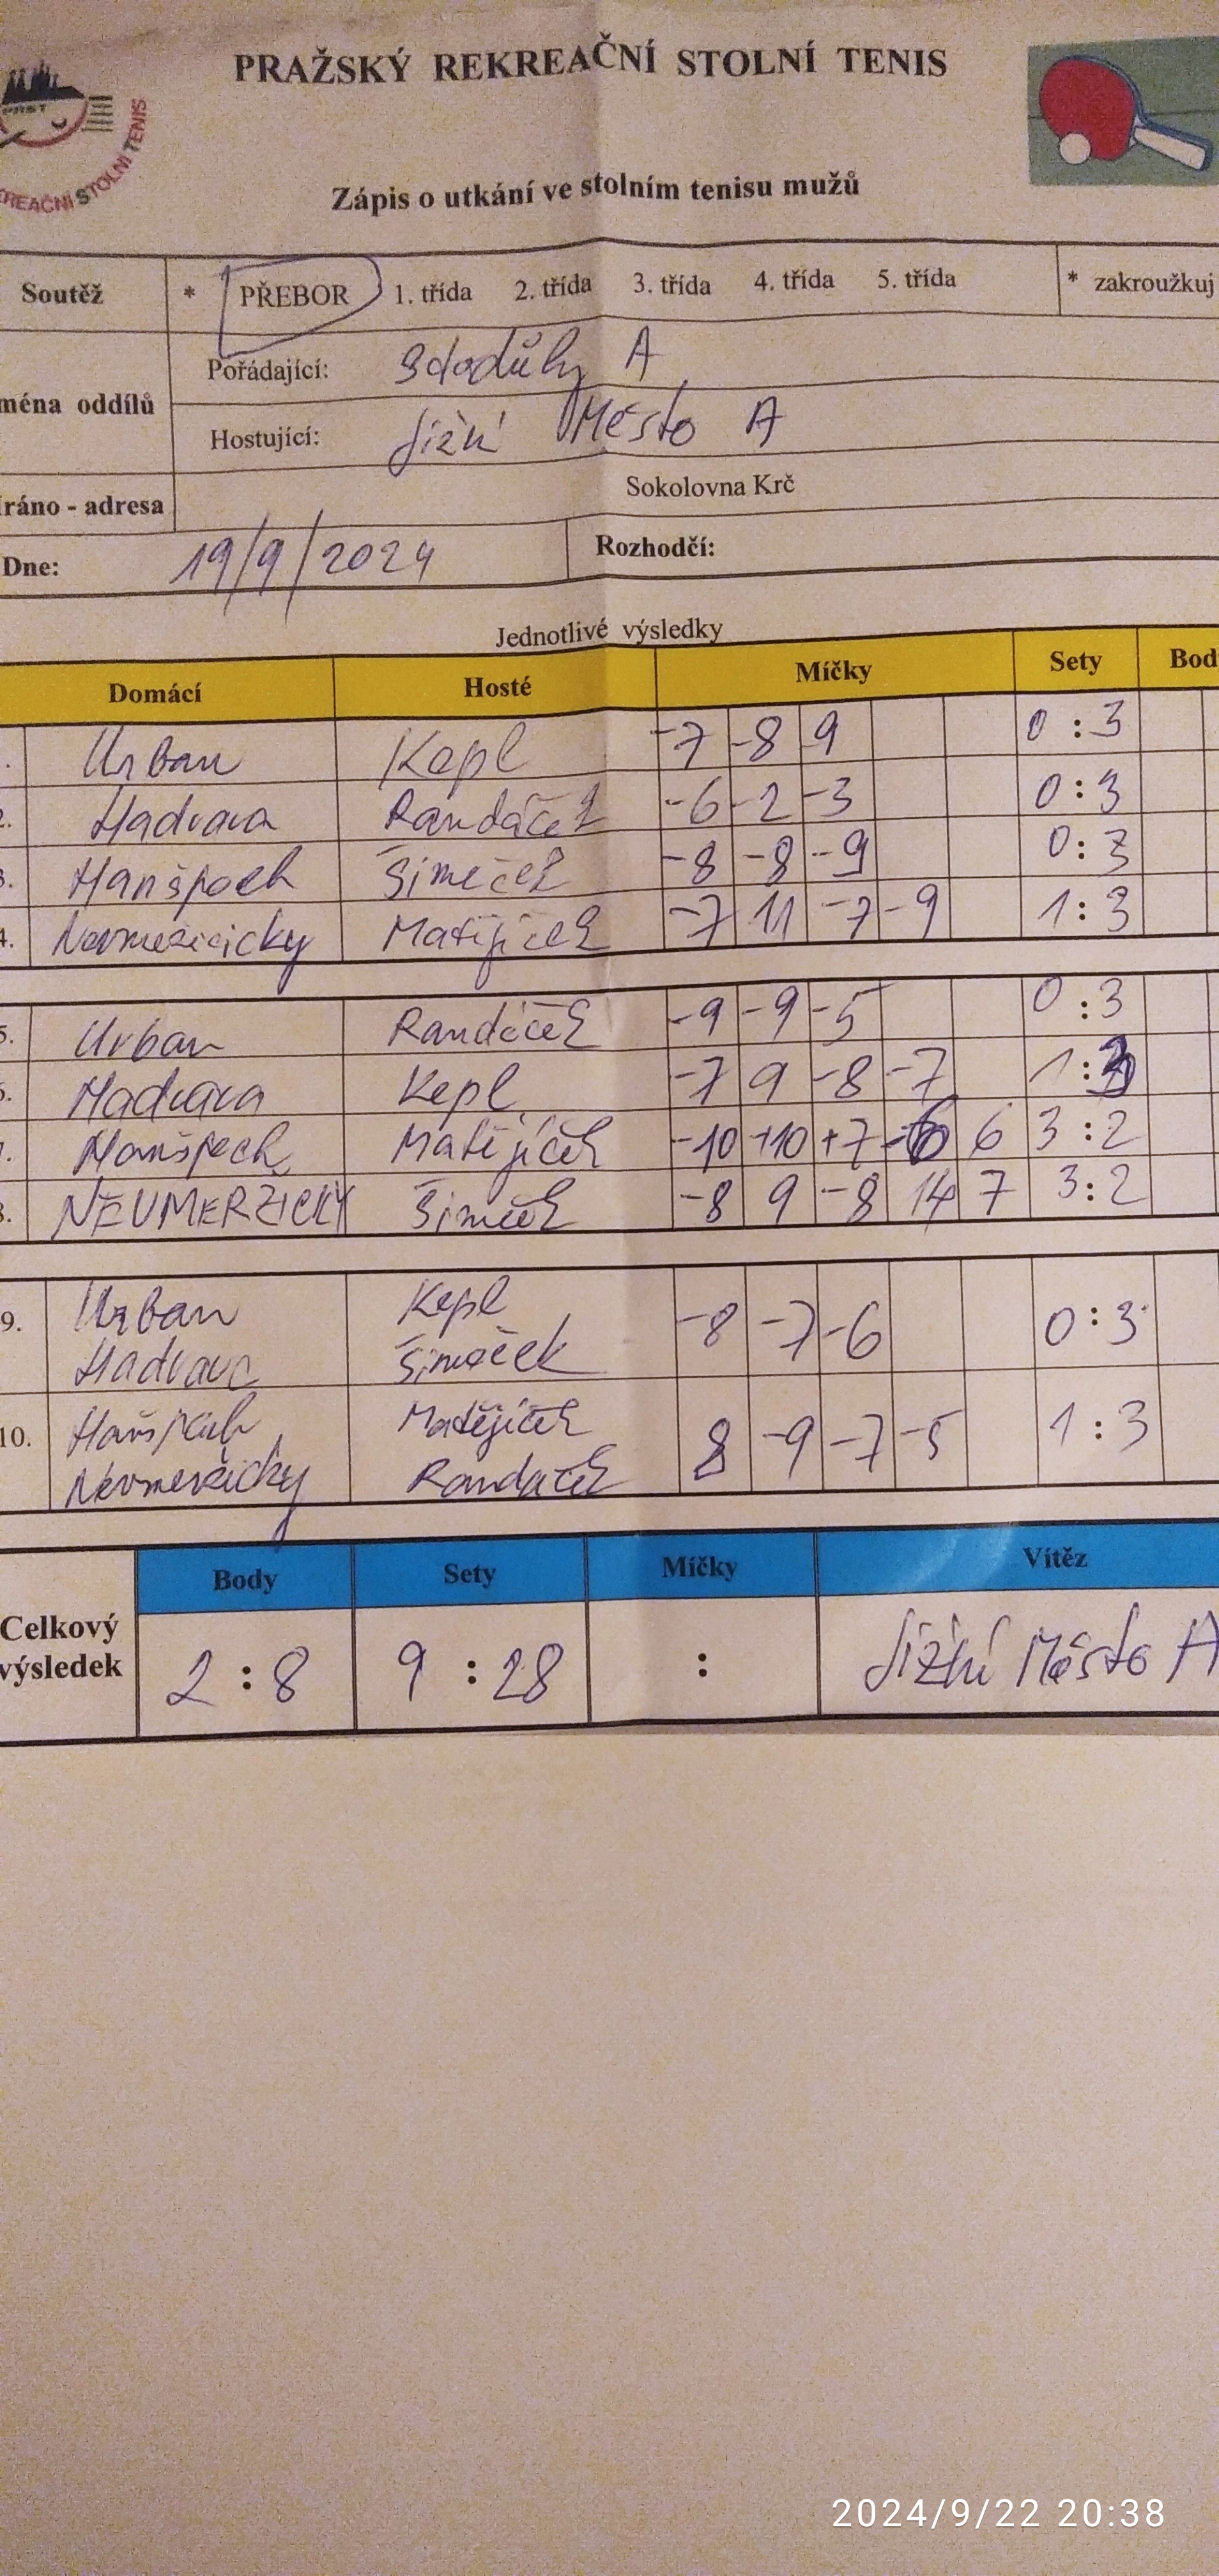 PRAŽSKÝ REKREAČNÍ STOLNÍ TENIS
PRST
REAČNÍ STOLNÍ TENIS
Zápis o utkání ve stolním tenisu mužů
Soutěž * PŘEBOR 1. třída 2. třída 3. třída 4. třída 5. třída * zakroužkuj
ména oddílů
Pořádající: Stodůlky A
Hostující: Jižní Město A
ráno - adresa Sokolovna Krč
Dne: 19/9/2024 Rozhodčí:
Jednotlivé výsledky
Domácí Hosté Míčky Sety Bod
. Urban Kepl -7 -8 9 0 : 3
2. Hadrava Randáček -6 -2 -3 0 : 3
3. Hanšpach Šimeček -8 -8 -9 0 : 3
4. Nevmeržicky Matějíček -7 11 -7 -9 1 : 3
5. Urban Randáček -9 -9 -5 0 : 3
6. Hadrava Kepl -7 9 -8 -7 1 : 3
7. Hanšpach Matějíček -10 +10 +7 6 3 : 2
8. NEVMERZICKY Šimeček -8 9 -8 14 7 3 : 2
9. Urban Kepl -8 -7 -6 0 : 3
Hadrava Šimeček
10. Hanšpach Matějíček 8 -9 -7 -5 1 : 3
Nevmeržicky Randáček
Body Sety Míčky Vítěz
Celkový
výsledek 2 : 8 9 : 28 : Jižní Město A
2024/9/22 20:38